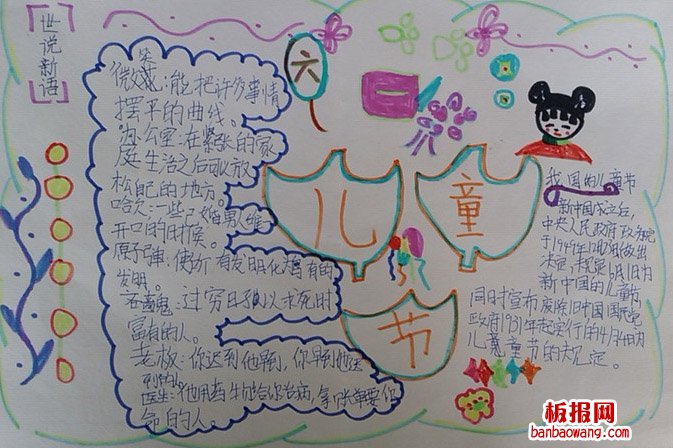 世说新语
微笑：能把许多事情
摆平的曲线。
办公室：在紧张的家
庭生活之后可以放
松自己的地方。
哈欠：一些已婚男人唯一
开口的时候。
原子弹：使所有发明化为有的
发明。
吝啬鬼：过穷日子以求死时
富有的人。
老板：你迟到他早到，你早到他迟
到的人
医生：他用药物给你治病，拿账单要你
命的人
六
儿
童
节
我国的儿童节
新中国成立后，
中央人民政府政务院
于1949年12月
决定，规定6月1日为
新中国的儿童节，
同时宣布废除旧中国国民党
政府1931年起实行的4月4日为
儿童节的规定。
板报网
banbaowang.com